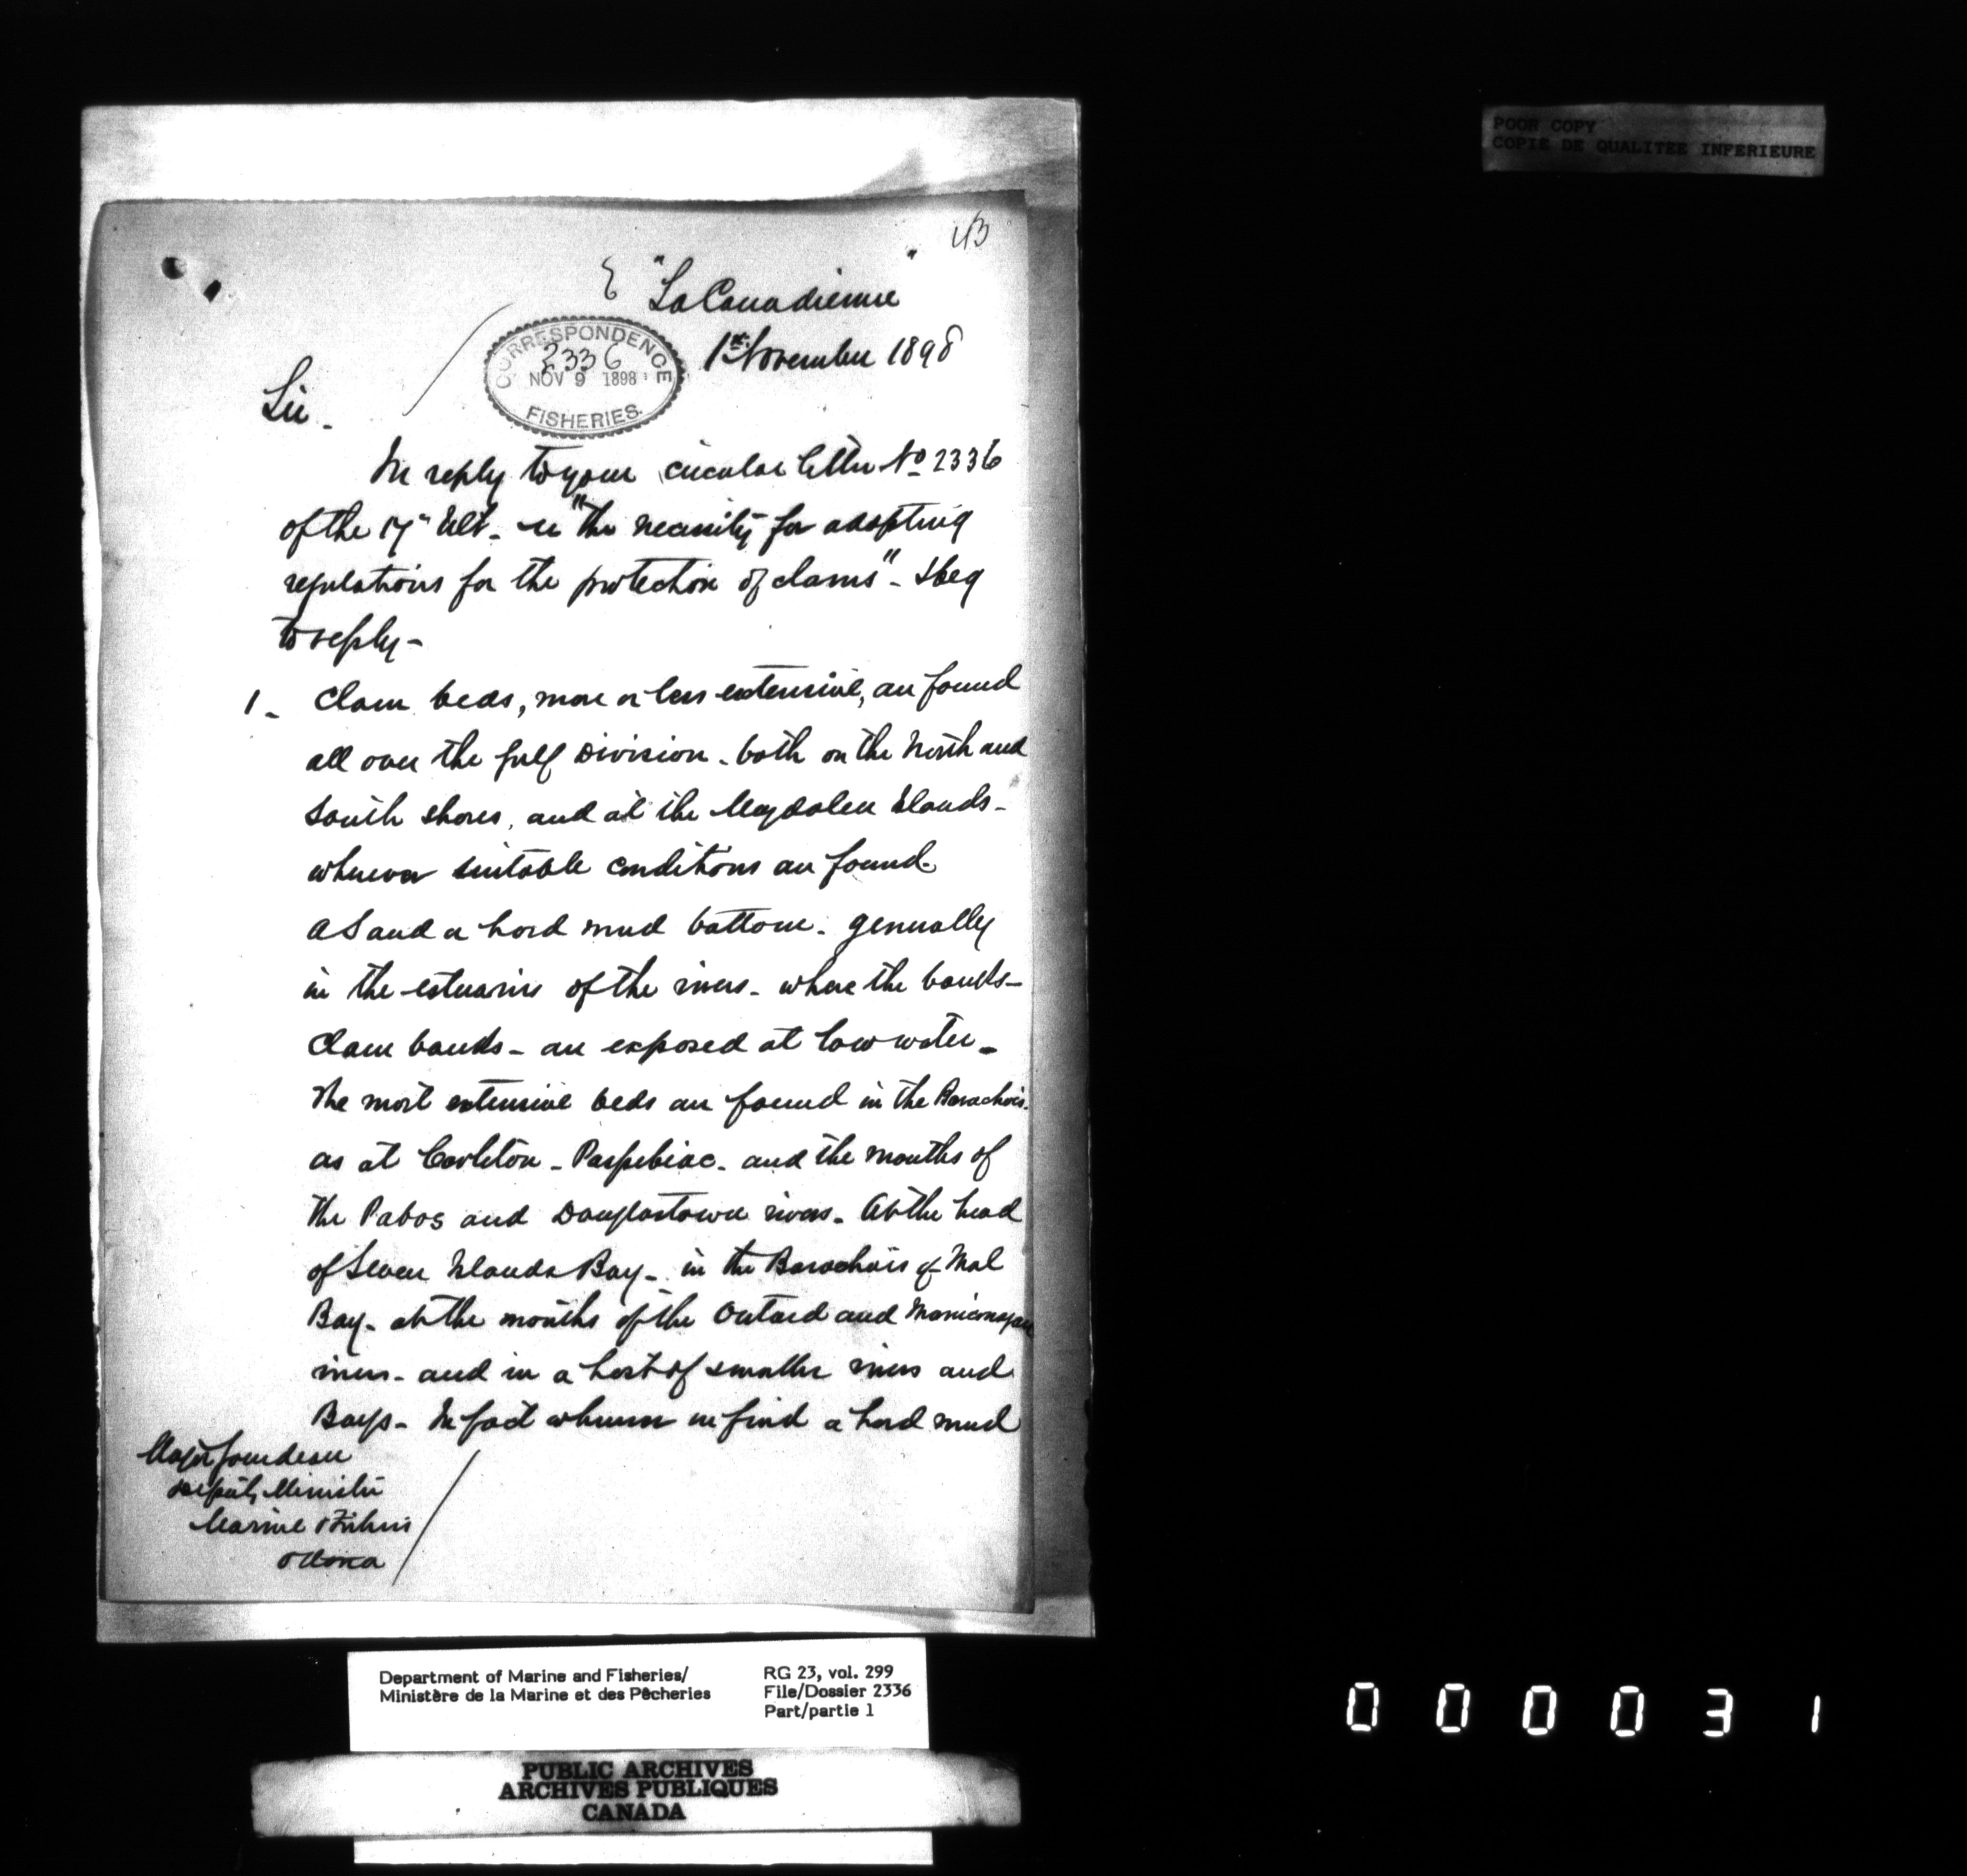 POOR COPY
COPIE DE QUALITEE INFERIEURE
43
"La Canadienne"
1st November 1898
CORRESPONDENCE
2336
NOV 9 1898
FISHERIES.
Sir.
In reply to your circular letter No 2336
of the 17" Ult. re "the necessity for adopting
regulations for the protection of clams" - I beg
to reply -
1 - Clam beds, more or less extensive, are found
all over the gulf Division - both on the North and
South shores, and at the Magdalen Islands -
wherever suitable conditions are found.
A Sand or hard mud bottom. generally
in the estuaries of the rivers - where the banks -
Clam banks - are exposed at low water -
The most extensive beds are found in the Barachois.
as at Carleton - Paspebiac - and the mouths of
the Pabos and Douglastown rivers - At the head
of Seven Islands Bay - in the Barachois of Mal
Bay - at the mouths of the Outard and Manicouagan
rivers - and in a host of smaller rivers and
Bays - In fact wherever we find a hard mud
Major Gourdeau
Deputy Minister
Marine & Fisheries
Ottawa
Department of Marine and Fisheries/
Ministère de la Marine et des Pêcheries
RG 23, vol. 299
File/Dossier 2336
Part/partie 1
PUBLIC ARCHIVES
ARCHIVES PUBLIQUES
CANADA
000031